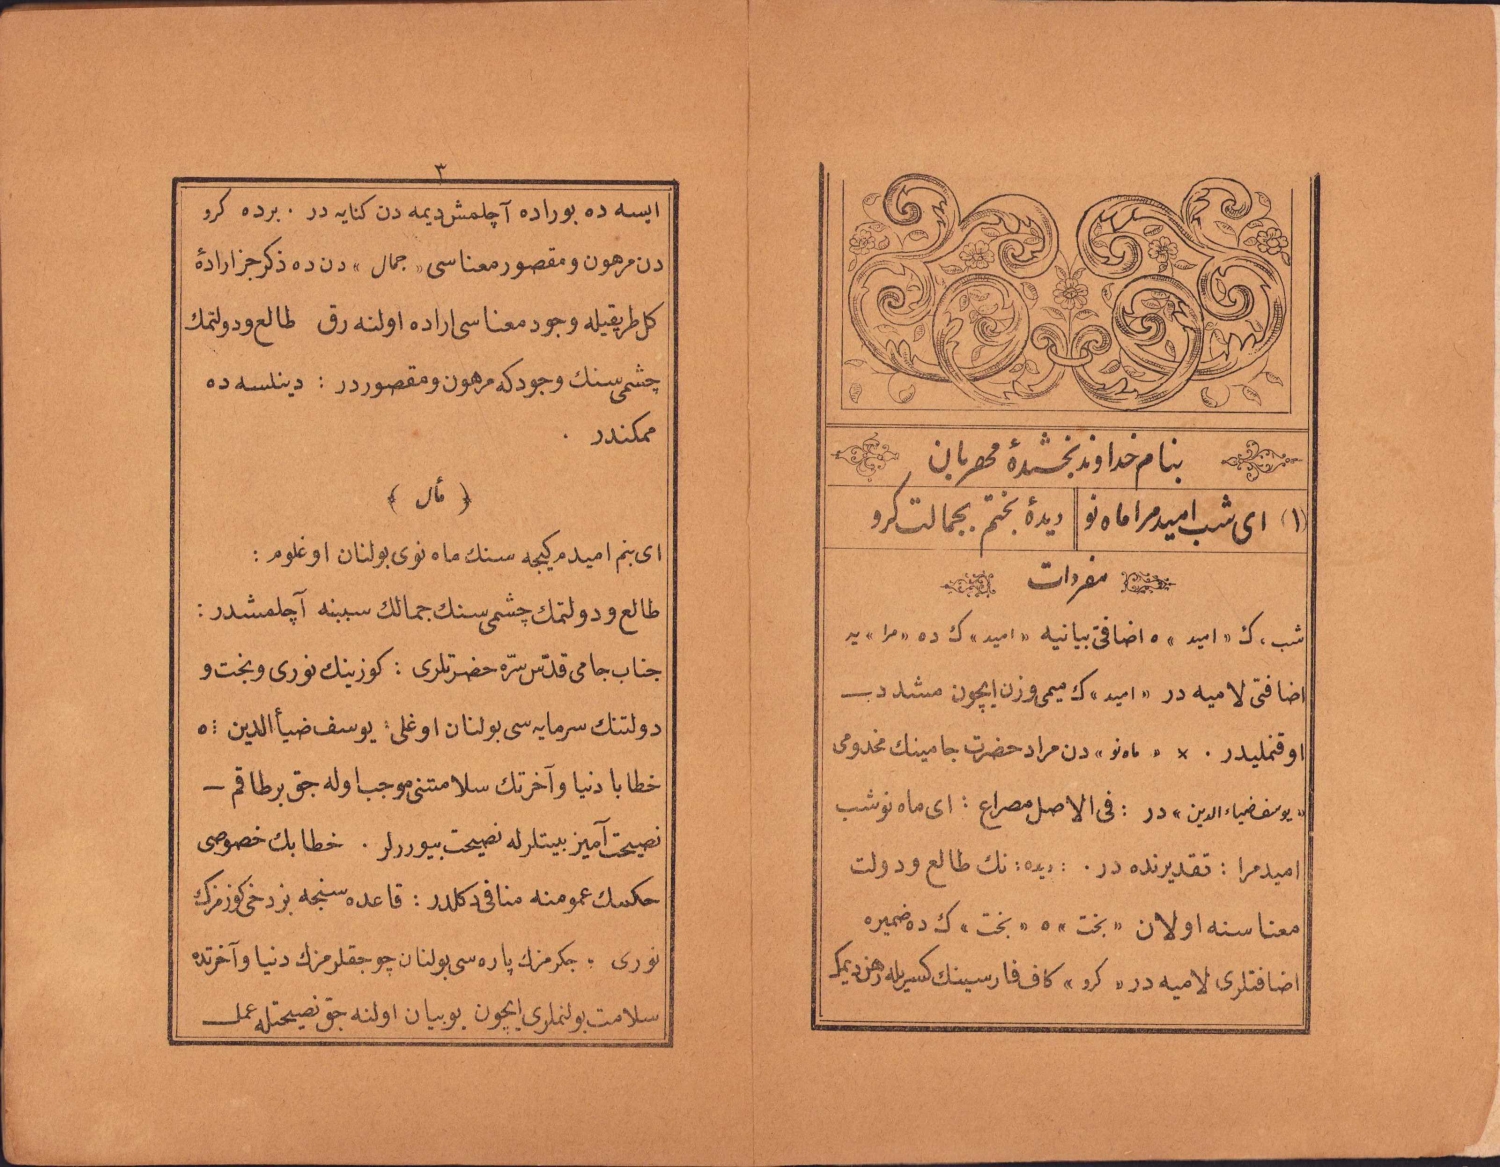 بنام خداوند بخشندهٔ مهربان
(١) ای شب امید مرا ماه نو دیدهٔ بختم بجمالت کرو
مفردات
شب، ك « امید » ه اضافتی بیانیه « امید » ك ده « مرا » یه
اضافتی لامیه در « امید » ك میمی وزن ایچون مشدد
اوقنملیدر . × « ماه نو » دن مراد حضرت جامینك مخدومی
« یوسف ضیاء الدین » در : فی الاصل مصراع : ای ماه نو شب
امید مرا : تقدیرنده در . : دیده : نك طالع و دولت
معناسنه اولان « بخت » ه « بخت » ك ده ضمیره
اضافتلری لامیه در « کرو » کاف فارسینك کسریله رهن دیمك
٣
ایسه ده بوراده آچلمش دیمه دن کنایه در . برده کرو
دن مرهون و مقصور معناسی « جمال » دن ده ذکر جز ارادهٔ
کل طریقیله وجود معناسی اراده اولنه رق طالع و دولتمك
چشمی سنك وجودکه مرهون و مقصوردر : دینلسه ده
ممکندر .
﴿ مأل ﴾
ای بنم امیدم کیجه سنك ماه نوی بولنان اوغلوم :
طالع و دولتمك چشمی سنك جمالك سببنه آچلمشدر :
جناب جامی قدّس سرّه حضرتلری : کوزینك نوری و بخت و
دولتنك سرمایه سی بولنان اوغلی : یوسف ضیأ الدین : ه
خطابا دنیا و آخرتك سلامتنی موجب اوله جق بر طاقم —
نصیحت آمیز بیتلرله نصیحت بیوررلر . خطابك خصوصی
حکمك عمومنه منافی دکلدر : قاعده سنجه بزدخی کوزمزك
نوری ؛ جکرمزك پاره سی بولنان چوجقلرمزك دنیا و آخرتده
سلامت بولنملری ایچون بو بیان اولنه جق نصیحتله عمل